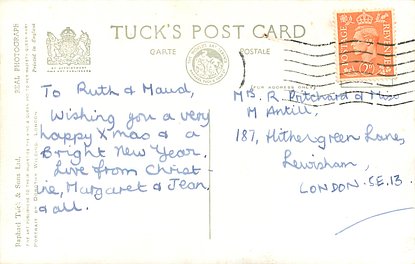 TUCK'S POST CARD
CARTE POSTALE
REAL PHOTOGRAPH
Raphael Tuck & Sons Ltd.
To Ruth & Maud,
Wishing you a very
happy Xmas & a
Bright New Year.
Love from Christ-
ine, Margaret & Jean
& all.
POSTAGE REVENUE
Mrs. R. Pritchard & Miss
M Antill,
187, Hithergreen Lane,
Lewisham,
LONDON. S.E.13.